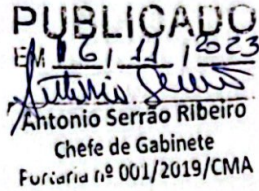 PUBLICADO
EM 16 / 11 / 2023
Antonio Serrão Ribeiro
Chefe de Gabinete
Portaria nº 001/2019/CMA